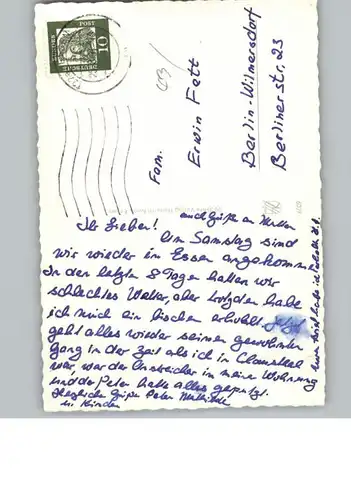 DEUTSCHE
POST
10
Fam.
Erwin Fett
Berlin-Wilmersdorf
Berlinerstr. 23
auch Grüße an
Ihr Lieben!
Am Samstag sind
wir wieder in Essen angekommen
In den letzten 8 Tagen hatten wir
schlechtes Wetter, aber trotzdem habe
ich mich ein bischen erholt. Jetzt
geht alles wieder seinen gewohnten
Gang in der Zeit als ich in Clausthal
war, war der Anstreicher in meine Wohnung
und der Peter hatte alles geputzt.
Herzliche Grüße Peter Mathilde
u. Kinder